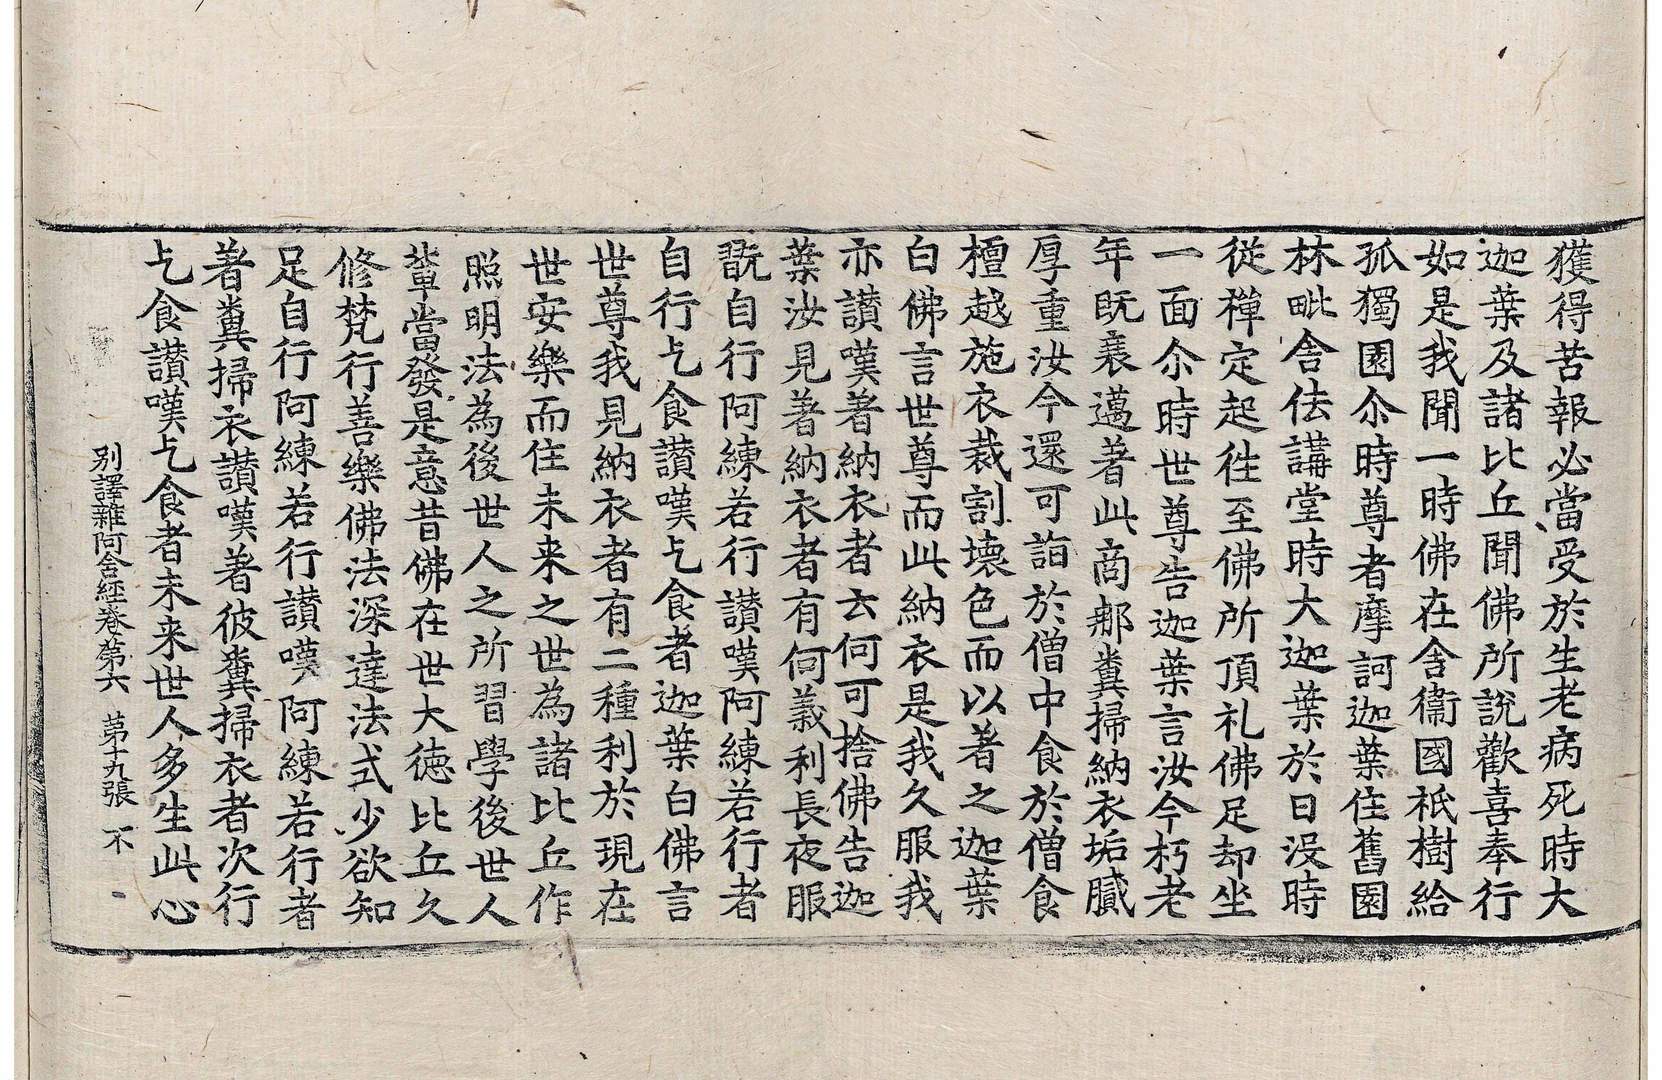 獲得苦報必當受於生老病死時大
迦葉及諸比丘聞佛所說歡喜奉行
如是我聞一時佛在舍衛國祇樹給
孤獨園尒時尊者摩訶迦葉住舊園
林毗舍佉講堂時大迦葉於日沒時
從禪定起往至佛所頂礼佛足却坐
一面尒時世尊告迦葉言汝今朽老
年旣衰邁著此商那糞掃納衣垢膩
厚重汝今還可詣於僧中食於僧食
檀越施衣裁割壞色而以著之迦葉
白佛言世尊而此納衣是我久服我
亦讃嘆著納衣者云何可捨佛告迦
葉汝見著納衣者有何義利長夜服
翫自行阿練若行讃嘆阿練若行者
自行乞食讃嘆乞食者迦葉白佛言
世尊我見納衣者有二種利於現在
世安樂而住未来之世為諸比丘作
照明法為後世人之所習學後世人
輩當發是意昔佛在世大德比丘久
修梵行善樂佛法深達法式少欲知
足自行阿練若行讃嘆阿練若行者
著糞掃衣讃嘆著彼糞掃衣者次行
乞食讃嘆乞食者未来世人多生此心
別譯雜阿含經卷第六 第十九張 不